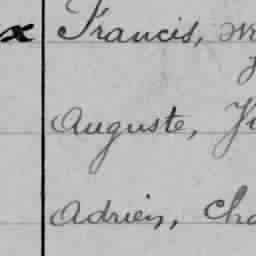 x Francis,
Auguste,
Adrien, Cha